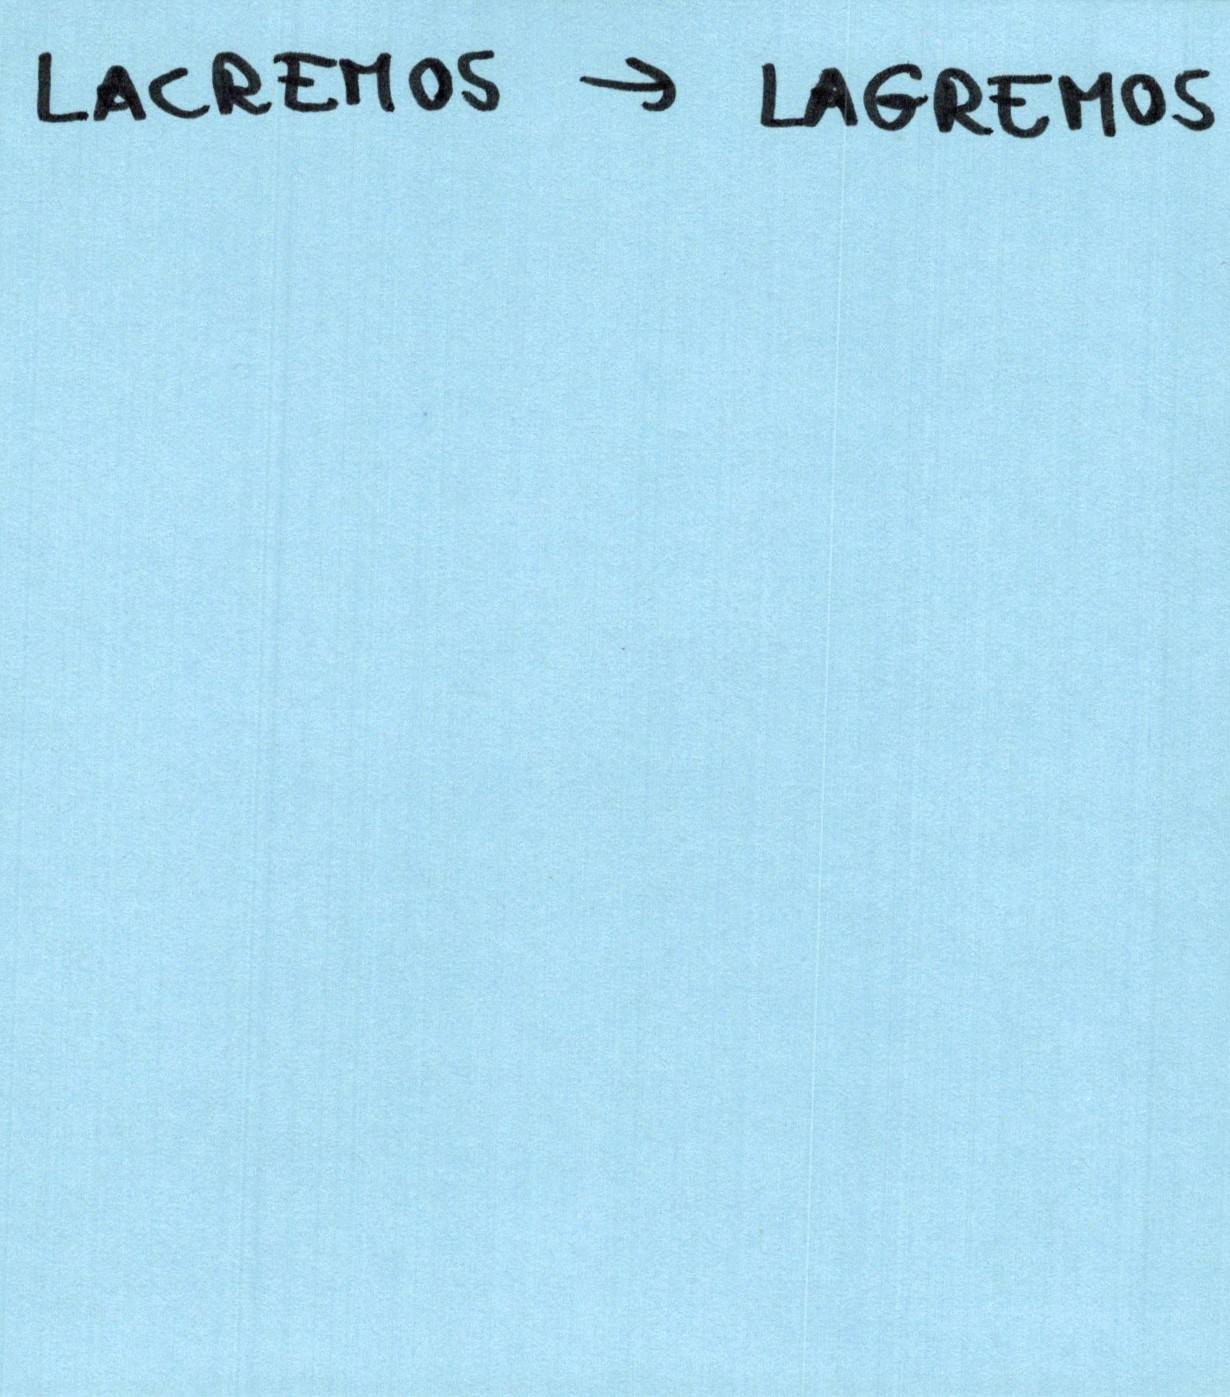 LACREMOS → LAGREMOS